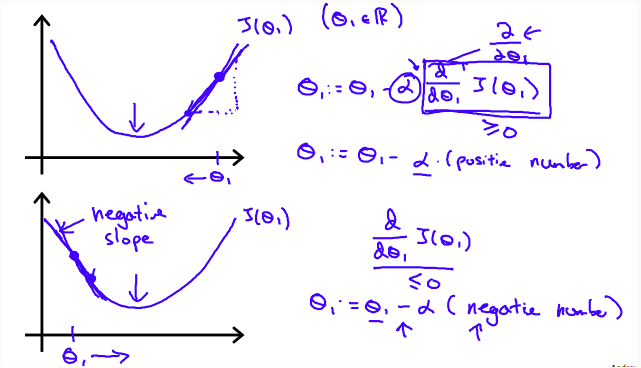 J(θ₁) (θ₁ ∈ ℝ)
∂/∂θ₁
θ₁ := θ₁ - α d/dθ₁ J(θ₁)
≥ 0
θ₁ := θ₁ - α · (positie number)
← θ₁
negative slope
J(θ₁)
d/dθ₁ J(θ₁)
≤ 0
θ₁ := θ₁ - α (negatie number)
θ₁ →